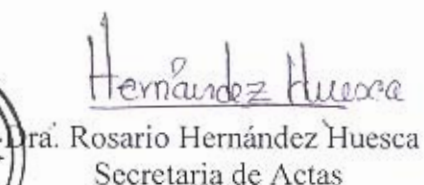 Hernández Huesca
Dra. Rosario Hernández Huesca
Secretaria de Actas